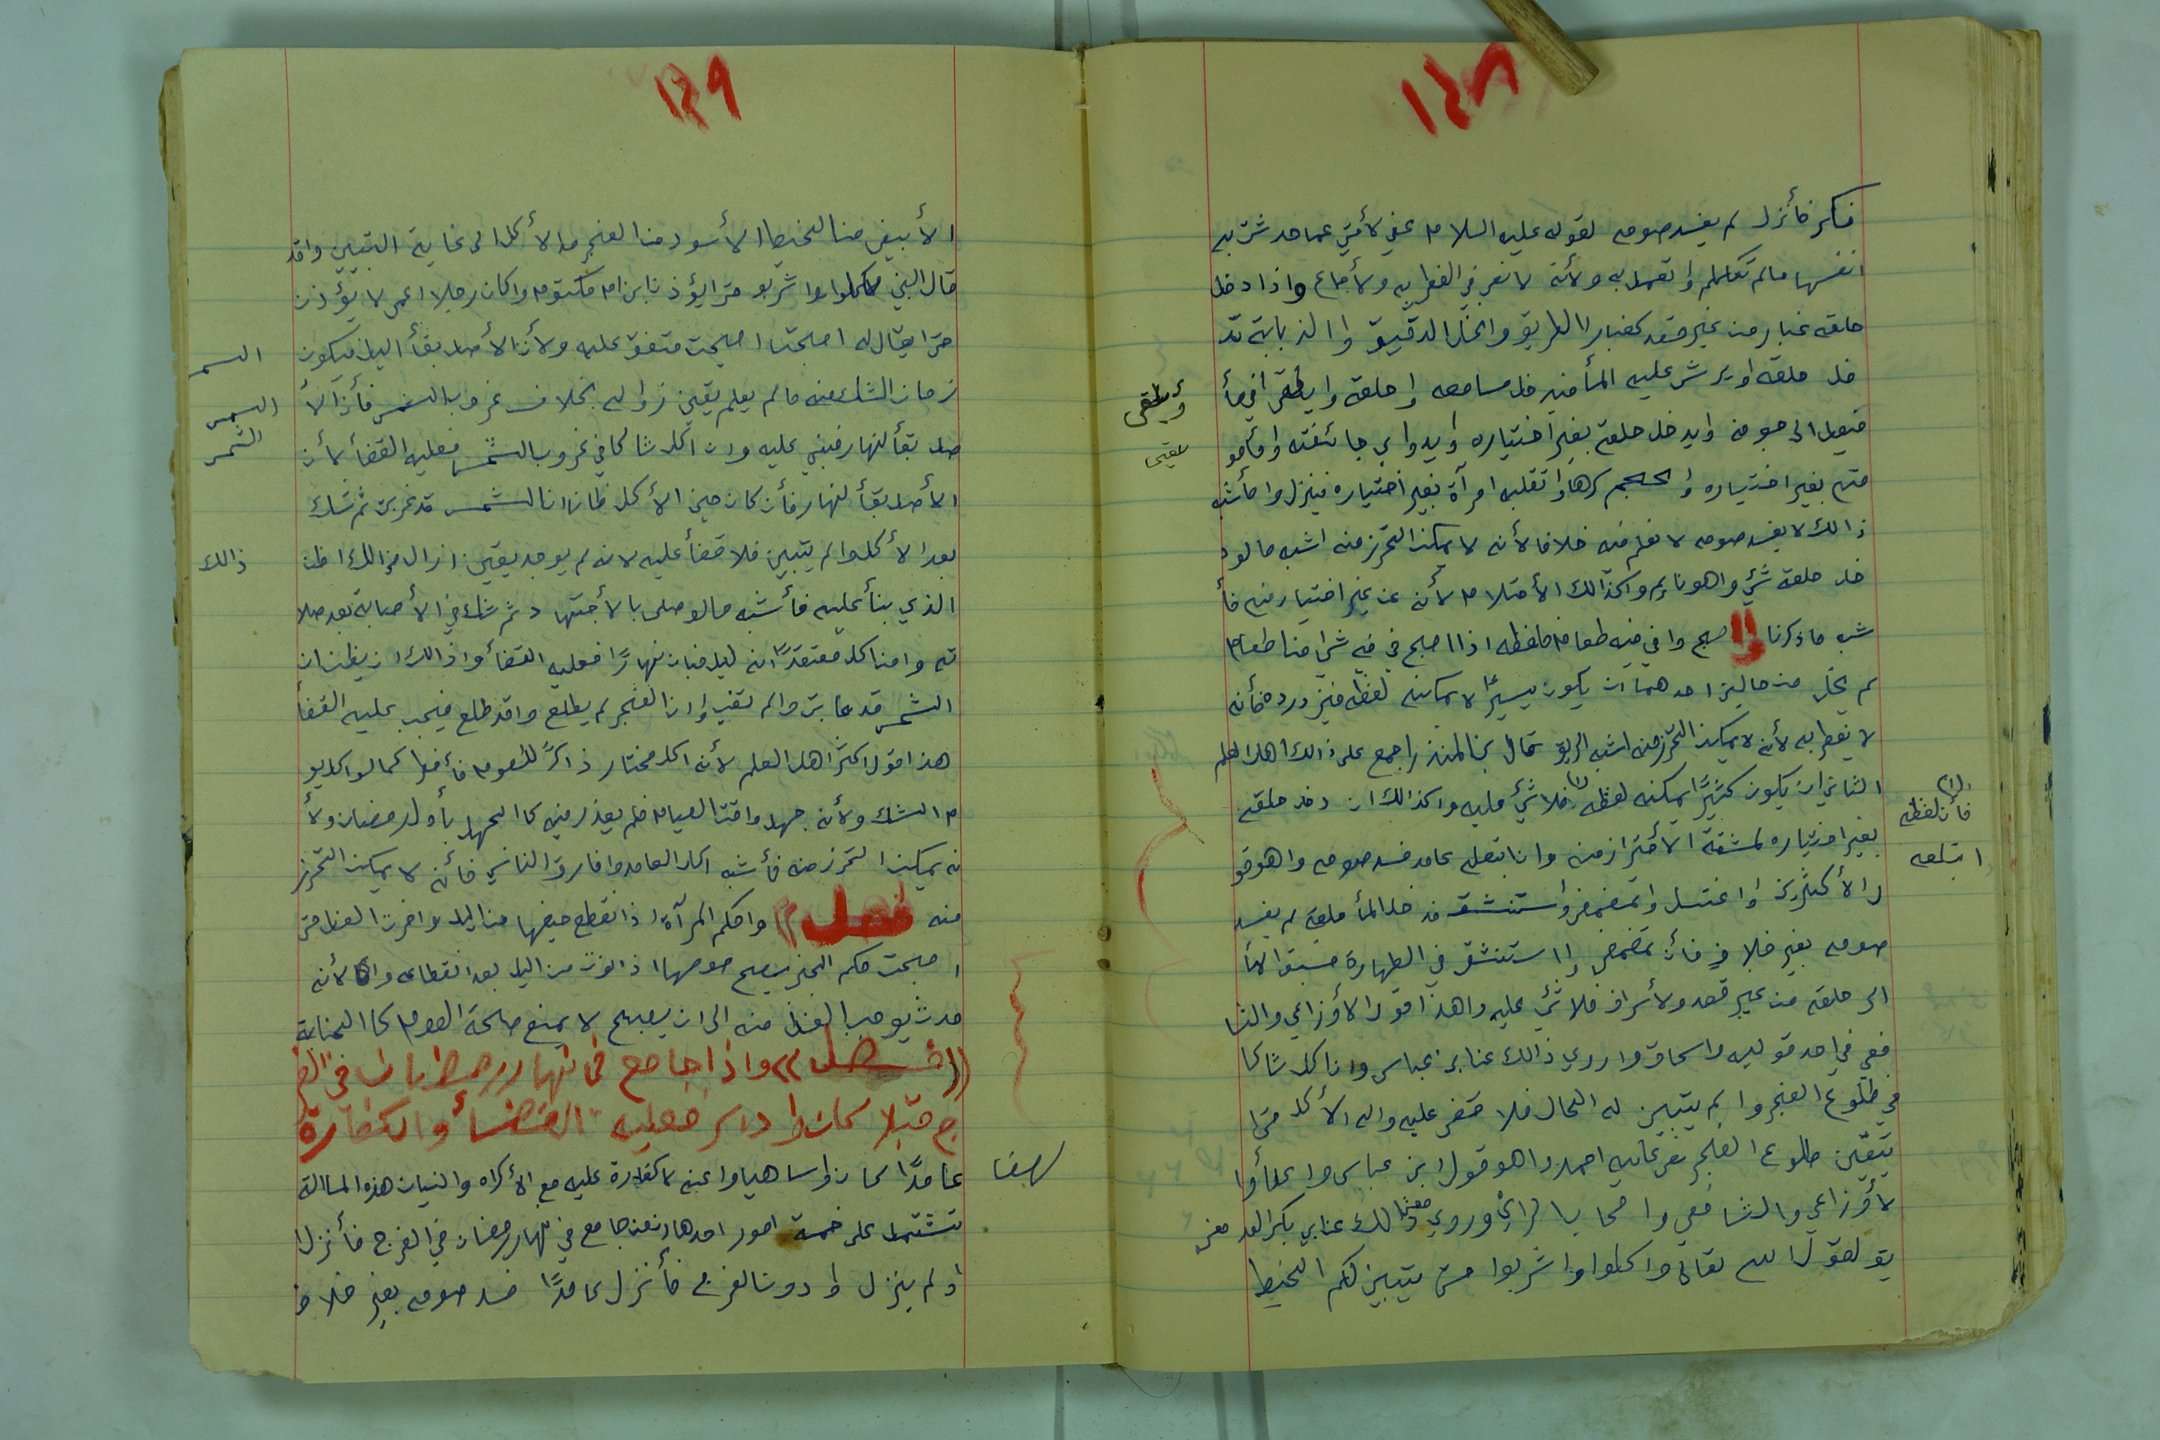 ١٤٨
فكر فأنزل لم يفسد صومه لقوله عليه السلام عفي لأمتي عما حدثت به
انفسها مالم تكلم او تعمل به ولأنه لا نص في الفطر به ولأجماع واذا دخل
حلقه غبار من غير قصد كغبار الطريق وانخل الدقيق وا الذبابة تد
خل حلقه او يرش عليه المأ فيدخل مسامعه او حلقه او يلقى في مأ
فيصل الى جوفه او يدخل حلقه بغير اختياره او يداوي جائفته او مأمو
مته بغير اختياره او يحجم كرها او تقبله امرآة بغير اختياره فينزل وا مأشبه
ذالك لا يفسد صومه لا نعلم فيه خلافا لأنه لا يمكن التحرز منه اشبه مالود
خل حلقه شئ واهو نايم وكذالك الأحتلام لأنه عن غير اختيار منه فأ
شبه ماذكرنا اا صبح وا في فيه طعام فلفظه اذا اصبح في فيه شئ من اطعام
لم يخل من حالين احدهما ان يكون يسيرًا لا يمكنه لفظه فيزدرده فأنه
لا يفطر به لأنه لا يمكن التحرز منه اشبه الريق قال بن المنذر اجمع على ذالك اهل العلم
الثاني ان يكون كثيرًا يمكنه لفظه (١) فلا شئ عليه واكذالك ان دخل حلقه
(١)
فأن لفظه
بغير اختياره لمشقة الأحترازمنه وان ابتلعه عامد فسد صومه واهو قو
ابتلعه
ل الأكثرين وا اغتسل او تمضمض او استنشق فدخل المأ حلقه لم يفسد
صومه بغير خلاف فأن تمضمض او استنشق في الطهارة فسبق المأ
الى حلقه من غير قصد ولأسراف فلا شئ عليه واهذا قول الأوزاعي والشا
فعي في احد قوليه واسحاق وا روي ذالك عن ابن عباس وان اكل شاكا
في طلوع الفجر وا لم يتبين له الحال فلا قضى عليه واله الأكل حتى
يتيقن طلوع الفجر نص عليه احمد واهو قول ابن عباس وا عطأ وا
لأوزاعي والشافعي وا صحاب الرأي وروي معنى ذالك عن ابي بكر الصد
يق لقول الله تعالى واكلوا واشربوا حتى يتبين لكم الخيط
١٤٩
الأبيض من الخيط الأسود من الفجر مد الأكل الى غاية التبيين واقد
قال النبي فكلوا وا شربو حتى يؤذن ابن ام مكتوم واكان رجلا اعمى لا يؤذن
حتى يقال له اصبحت اصبحت متفق عليه ولأن الأصل بقأ اليل فيكون
زمان الشك منه مالم يعلم يقين زواله بخلاف غروب الشمس فأن الأ
صل بقأ النهار فبني عليه وان اكل شاكا في غروب الشمس فعليه القضأ لأن
الشمر
الأصل بقأ النهار فأن كان حين الأكل ظانا ان الشمس قد غربت ثم شك
بعد الأكل وا لم يتبين فلا قضأ عليه لانه لم يوجد يقين ازال ذالك الظن
ذالك
الذي بنأ عليه فأشبه مالو صلى بالأجتهاد ثم شك في الأصابة بعد صلا
ته وا من اكل معتقدًا انه ليل فبان نهارًا فعليه القضأ واذالك ان يظن ان
الشمس قد غابت والم تغب او ان الفجر لم يطلع واقد طلع فيجب عليه القضأ
هذا قول اكثر اهل العلم لأنه اكل مختار ذاكرً للصوم فأفطر كما لو اكل يو
م الشك ولأنه جهل وقت الصيام فلم يعذر فيه كا الجهل بأول رمضان ولأ
نه يمكن التحرز منه فأشبه اكل العامد وافارق الناسي فأنه لا يمكن التحرز
منه فصل)) واحكم المرآة اذا انقطع حيضها من اليل وا خرت الغسل حتى
اصبحت حكم الجنب يصح صومها اذا نوت من اليل بعد انقطاعه واا لأنه
حدث يوجب الغسل منه الى ان يصبح لا يمنع صحة الصوم كا الجنابة
((فصل)) واذا جامع في نهار رمضان في الفر
ج قبلا كان او دابر فعليه القضأ والكفارة
عامدًا كان او ساهيا وا عنه لا كفارة عليه مع الأكراه والنسيان هذه المسالة
تشتمل على خمسة امور احدها ان من جامع في نهار رمضان في الفرج فأنزل
او لم ينزل او دون الفرج فأنزل عامدًا فسد صومه بغير خلاف